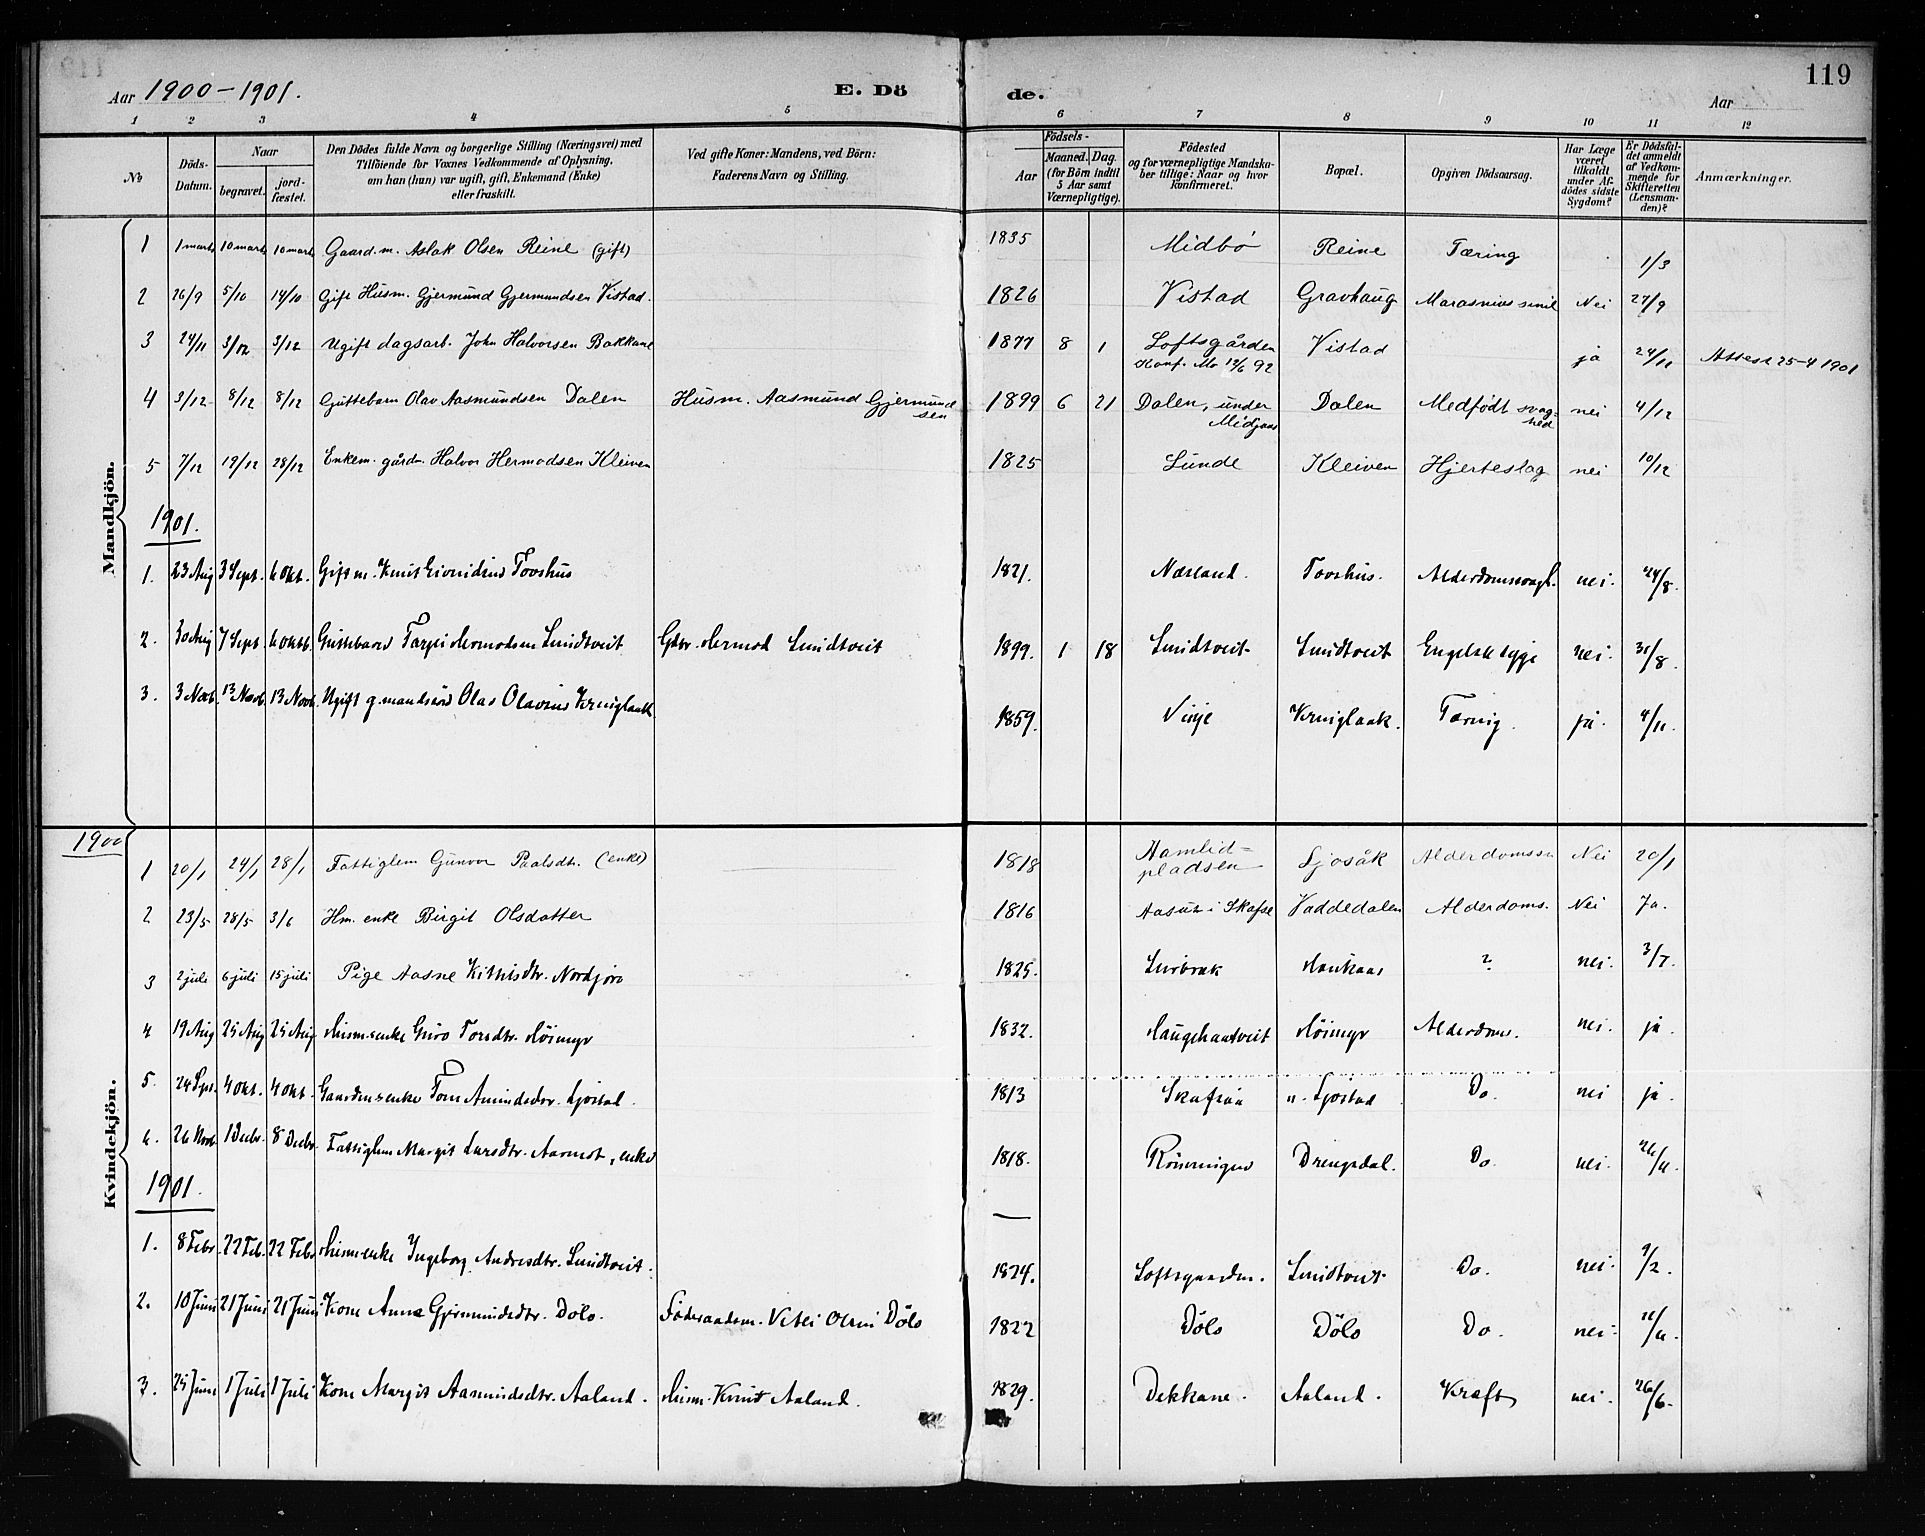 119
Aar 1900-1901.
E. Döde.
Aar
1 2 3 4 5 6 7 8 9 10 11 12
No
Döds-Datum.
Naar
begravet.
jord-fæstet.
Den Dödes fulde Navn og borgerlige Stilling (Næringsvei) med
Tilföiende for Voxnes Vedkommende af Oplysning,
om han (hun) var ugift, gift, Enkemand (Enke)
eller fraskilt.
Ved gifte Koner: Mandens, ved Börn:
Faderens Navn og Stilling.
Födsels-
Aar
Maaned. Dag.
(for Börn indtil
5 Aar samt
Værnepligtige).
Födested
og for værnepligtige Mandska-
ber tillige: Naar og hvor
konfirmeret.
Bopæl.
Opgiven Dödsaarsag.
Har Læge
været
tilkaldt
under Af-
dödes sidste
Sygdom?
Er Dödsfal-
det anmeldt
af Vedkom-
mende for
Skifteretten
(Lensman-
den)?
Anmærkninger.
Mandkjön.
1 1 marts 10 marts 10 marts Gaardm. Aslak Olsen Reine (gift) 1835 Midbö Reine Tæring 1/3
2 26/9 5/10 14/10 Gift Husm. Gjermund Gjermundsen Vistad. 1826 Vistad Gravhaug Marasmus senil Nei 27/9
3 24/11 3/12 3/12 Ugift dagsarb. John Halvorsen Bakkane 1877 8 1 Loftsgården Vistad ja 24/11 Attest 25-4 1901
Konf. Mo 12/6 92
4 3/12 8/12 8/12 Guttebarn Olav Aasmundsen Dalen Husm. Aasmund Gjermundsen 1899 6 21 Dalen, under Dalen Medfödt svaghed nei 4/12
5 7/12 19/12 28/12 Enkem. gårdm. Halvor Hermodsen Kleiven 1825 Lunde Kleiven Hjerteslag nei 10/12
1901.
1. 23 Aug 3 Sept. 6 Okt. Gift m. Knut Eivindsen Tovshus 1821. Næsland. Tovshus. nei. 24/8.
2. 30 Aug 7 Sept. 6 Oktb. Guttebarn Tarjei Hermodsen Smidtveit Gbr. Hermod Smidtveit 1899. 1 18 Smidtveit Smidtveit Engelsk syge nei. 31/8.
3. 3 Novb. 13 Novb. 13 Novb. Ugift g.mandssön Olav Olavsen 1859. Vinje ja. 4/11.
Kvindekjön.
1900
1 20/1 24/1 28/1 Fattiglem Gunvor Paalsdtr. (enke) 1818 Hamlid-
pladsen Ljosåk Nei 20/1
2 23/5 28/5 3/6 Hm. enke Birgit Olsdatter 1816 i Skafse Vaddedalen Alderdoms. Nei Ja.
3 2 juli 6 juli 15 juli Pige Aasne Nordjore 1825. Haukaas ? nei. 3/7.
4 19 Aug 25 Aug 25 Aug Husm.enke Guro Torsdtr. Höimyr 1832. Höimyr Alderdoms. nei. ja.
5. 24 Spt. 4 Okt. 4 Okt. Gaardms.enke Tone Amundsdtr. 1813 Skafsaa Do. nei ja.
6. 26 Novb. 1 Decbr. 8 Decbr. Fattiglem Margit Larsdtr. Aamot, enke 1818. Rönningen Drengsdal. Do. nei. 26/11.
1901.
1. 8 Febr. 22 Feb. 22 Febr. Husm.enke Ingeborg Andresdtr. Smidtveit. 1824. Loftsgaarden. Smidtveit Do. nei. 9/2.
2. 10 Juni 21 Juni 21 Juni Kone Anne Gjermundsdtr. Dölo. Föderaadsm. Vetle Olsen Dölo 1822 Dölo Dölo Do. nei.
3. 25 Juni 1 Juli 1 Juli Kone Margit Aasmundsdtr. Aaland. Husm. Knut Aaland. 1829. Dekkane. Aaland. Kræft nei. 26/6.